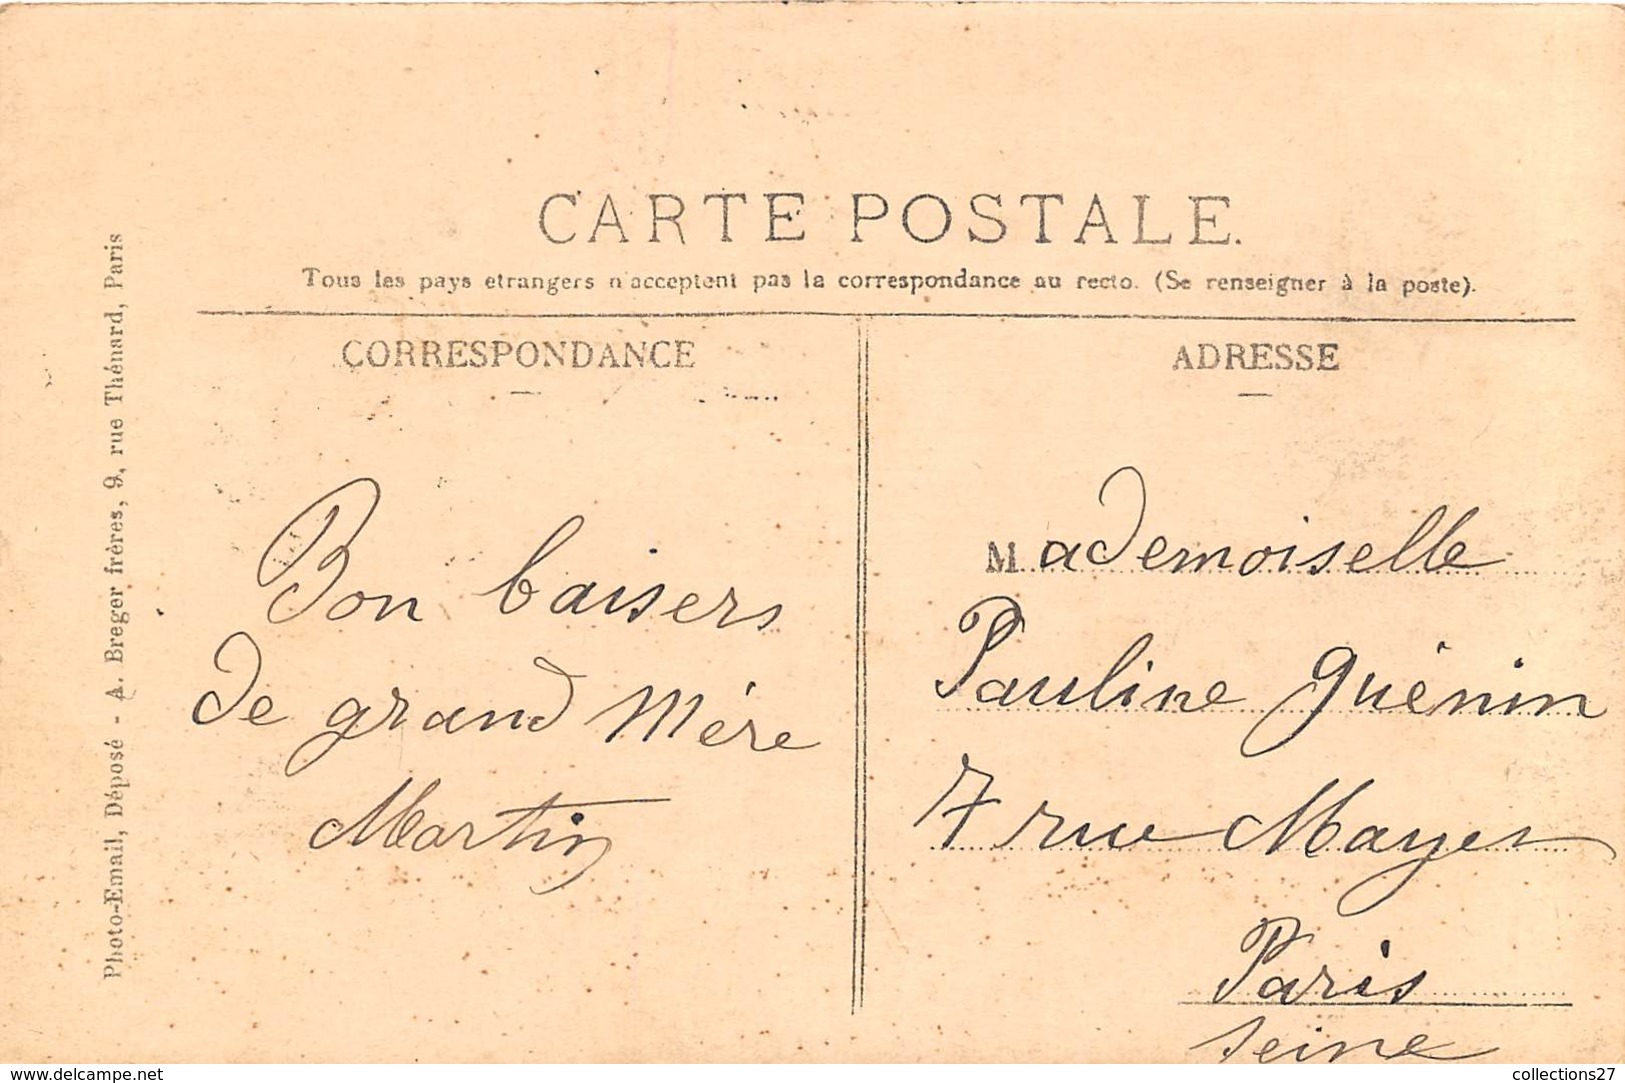 CARTE POSTALE.
Tous les pays etrangers n'acceptent pas la correspondance au recto. (Se renseigner à la poste).
CORRESPONDANCE
Bon baisers
de grand Mére
Martin
ADRESSE
Mademoiselle
Pauline Guénin
7 rue Mayer
Paris
Seine
Photo-Email, Déposé - A. Breger frères, 9, rue Thénard, Paris
www.delcampe.net
collections27